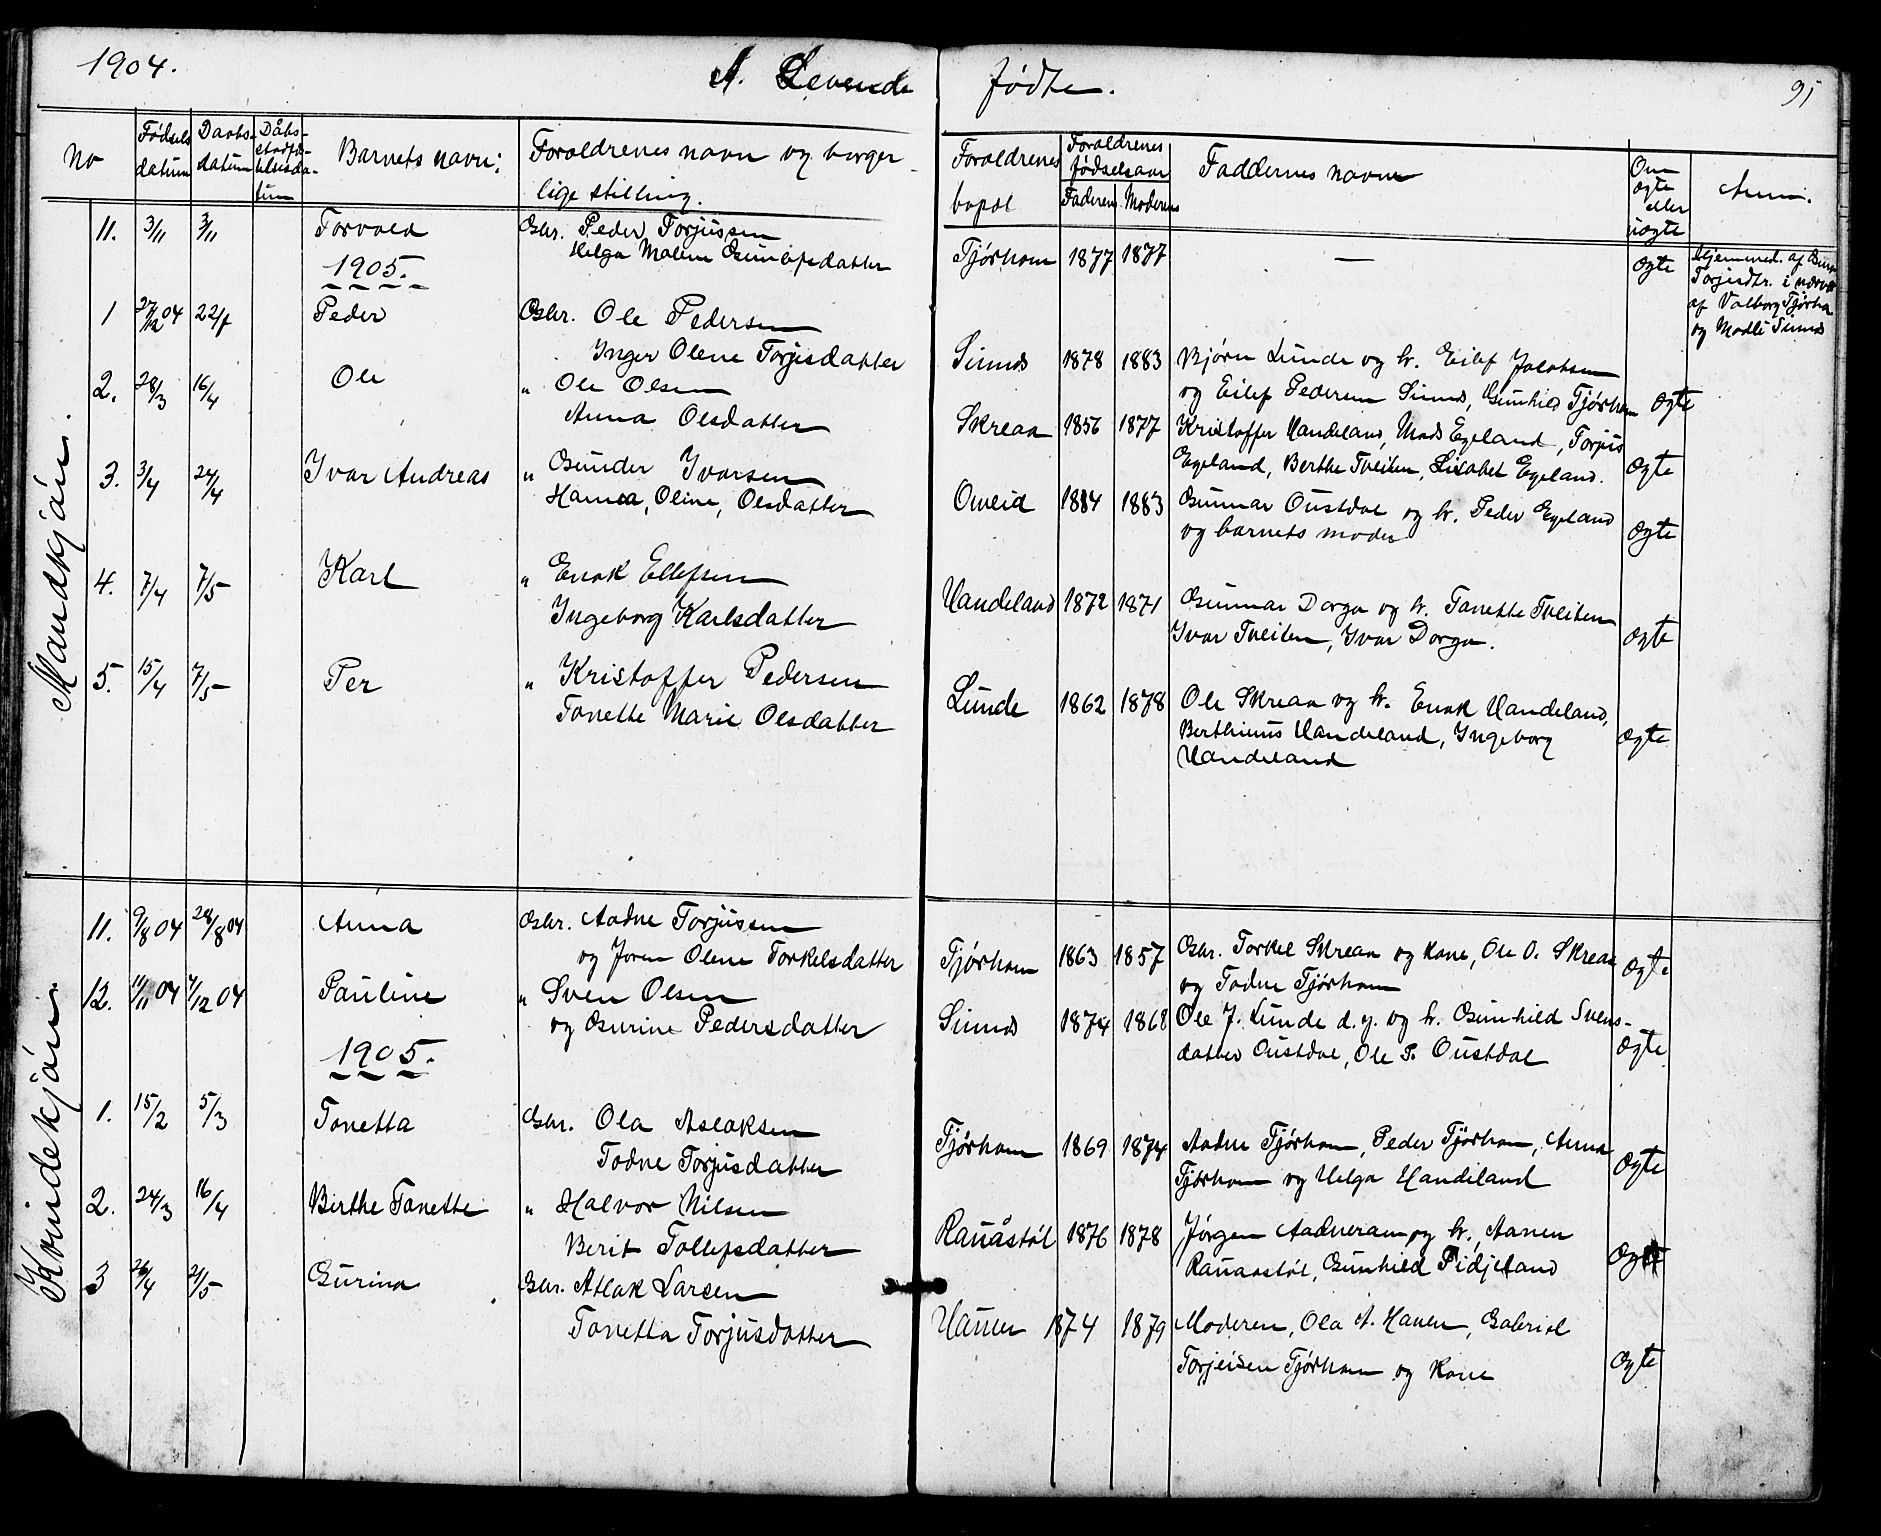 1904.
A. Levende fødte.
95
No
Fødsels datum
Daabs- datum
Barnets navn:
Forældrenes navn og borgerlige stilling.
Forældrenes bopæl
Forældrenes fødselsaar
Faderens
Moderens
Faddernes navne
Om ægte eller uægte
Anm.
Mandkjøn.
11. 3/11 3/11 Torvald Gbr. Peder Torjussen Tjørhom 1877 1877 — ægte Hjemmed. af
Helga Malene
af Valborg Tjørhom
1905.
1 27/12 04 Peder Gbr. Ole Pedersen
Inger Olene Torjisdatter Sinnes 1878 1883 Bjørn Lunde og h. Eilef Jacobsen
og Eilef Pedersen Sinnes, Gunhild Tjørhom ægte
2. 28/3 16/4 Ole " Ole Olsen
Anna Olsdatter Skreaa 1856 1877 Kristoffer Handeland, Mads Egeland, Torjus
Egeland, Berthe Tveiten, Lisabet Egeland. ægte
3. 3/4 24/4 Ivar Andreas " Gunder Ivarsen
Hanna, Oline, Olsdatter Omlid 1884 1883 Gunnar Oustdal og h. Peder Egeland
og barnets moder ægte
4. 7/4 7/5 Karl " Enok Ellefsen
Ingeborg Karlsdatter Handeland 1872 1871 Gunnar Dorga og h. Tanette Tveiten
Ivar Tveiten, Ivar Dorga. ægte
5. 15/4 7/5 Per " Kristoffer Pedersen
Tonette Marie Olsdatter Lunde 1862 1878 Ole Skreaa og h. Enok Handeland,
Berthinus Handeland, Ingeborg
Handeland ægte
Kvindekjøn.
11. 9/8 04 28/8 04 Anna Gbr. Aadne Torjussen
og Joren Olene Torkelsdatter Tjørhom 1863 1857 Gbr. Torkel Skreaa og kone, Ole O. Skreaa
og Todne Tjørhom ægte
12. 11/11 04 4/12 04 Pauline " Sven Olsen
og Gurine Pedersdatter Sinnes 1874 1868 Ole J. Lunde d.y. og h. Gunhild Svens-
datter Oustdal, Ole P. Oustdal ægte
1905.
1. 15/2 5/3 Tonetta Gbr. Ola Aslaksen
Todne Torjusdatter Tjørhom 1869 1874 Aadne Tjørhom, Peder Tjørhom, Anna
Tjørhom og Helga Handeland ægte
2. 24/3 16/4 Birthe Tonette " Halvor Nilsen
Berit Tollefsdatter Rauåstøl 1876 1878 Jørgen Aadneram og h. Aanen
Rauaastøl, Gunhild Pidjeland ægte
3 26/4 21/5 Gurina Gbr. Atlak Larsen
Tonetta Torjusdatter Haunen 1874 1879 Moderen, Ola A. Haunen, Gabriel
Torjeisen Tjørhom og kone ægte